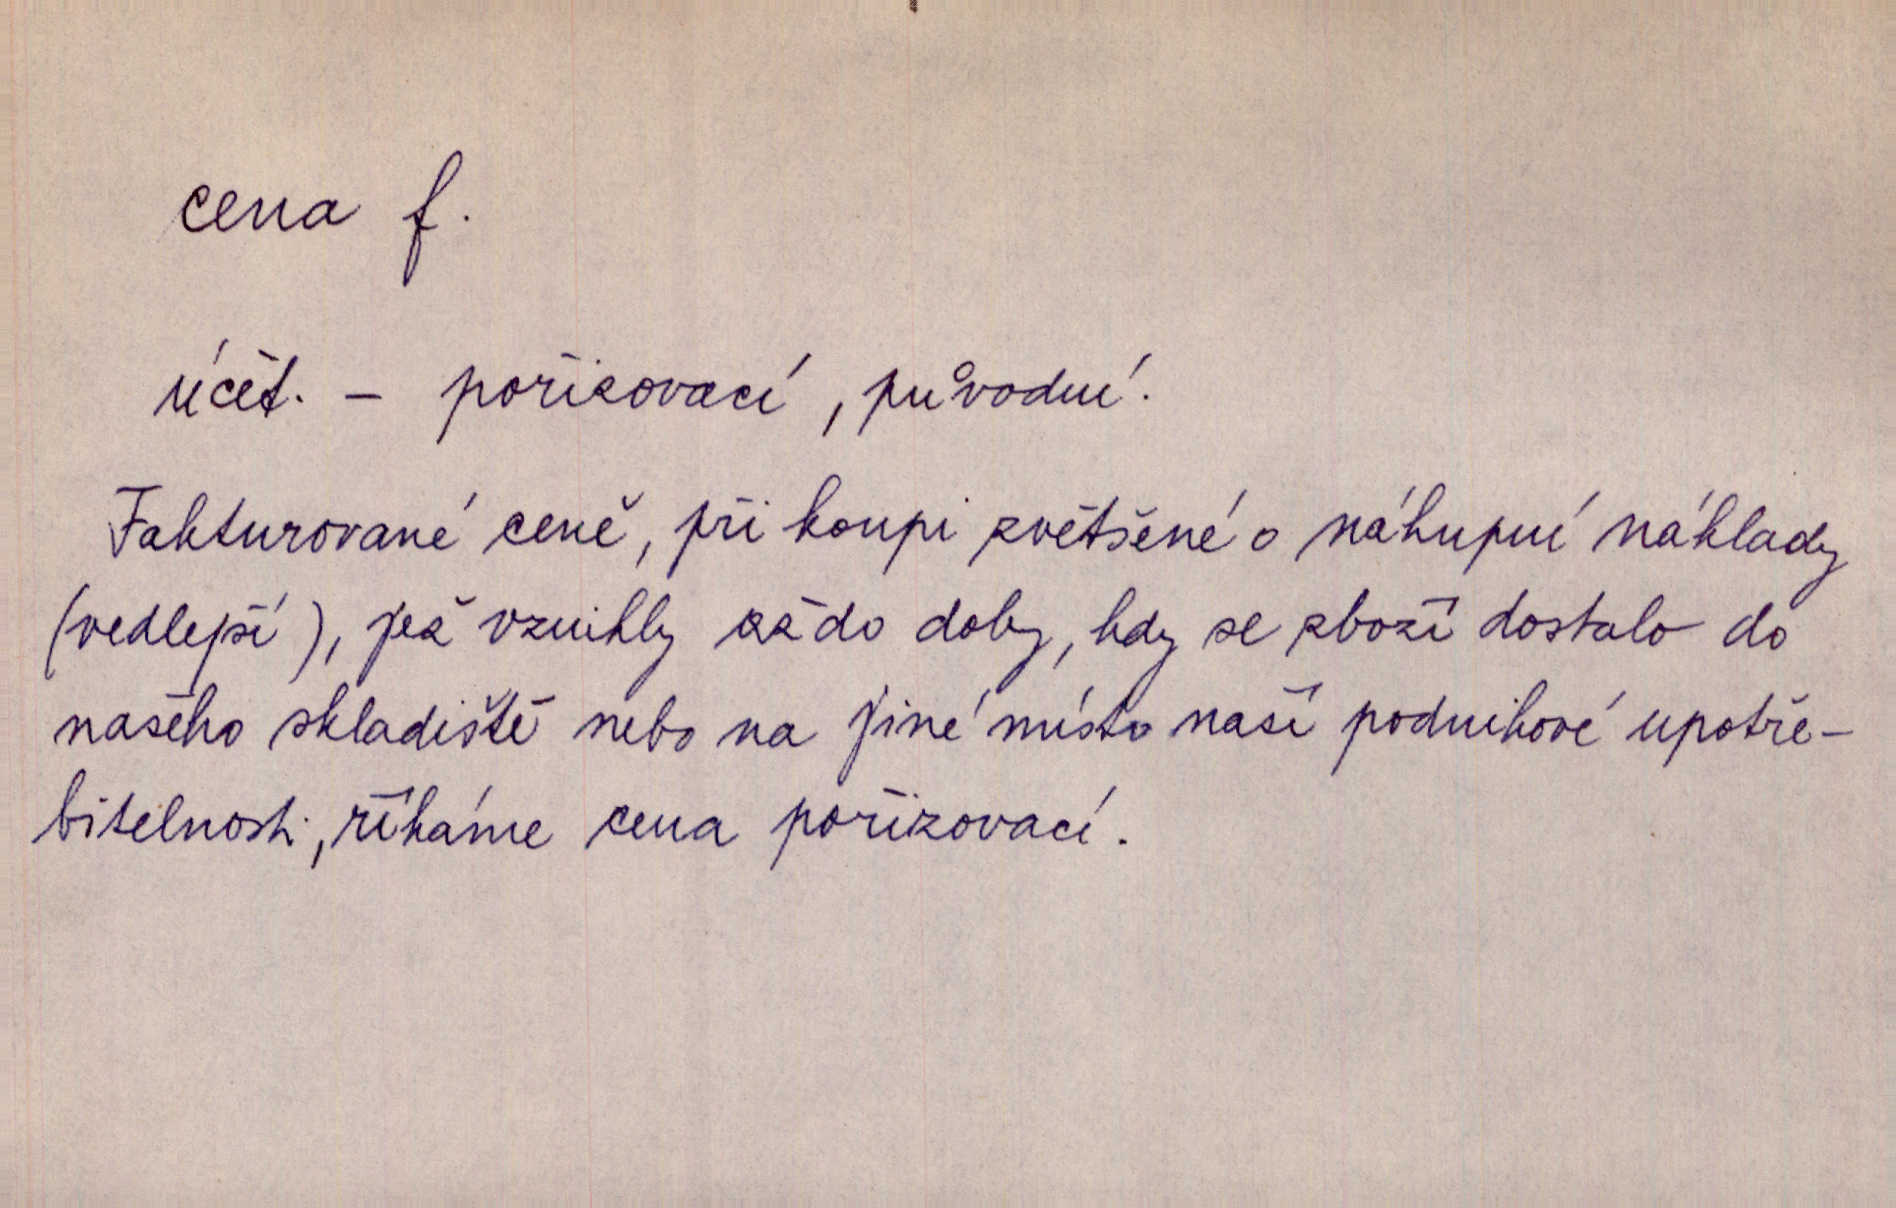 cena f.
účet. – pořizovací, původní.
Fakturované ceně, při koupi zvětšené o nákupní náklady
(vedlejší), jež vznikly až do doby, kdy se zboží dostalo do
našeho skladiště nebo na jiné místo naší podnikové upotře-
bitelnosti, říkáme cena pořizovací.